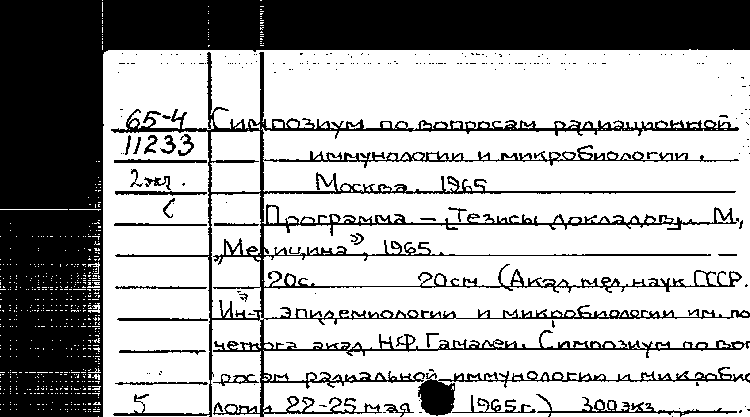 65-4 Симпозиум по вопросам радиационной
11233 иммунологии и микробиологии.
2экз. Москва. 1965
Программа – [Тезисы докладов]. М.,
„Медицина”, 1965.
20с. 20см (Акад. мед. наук СССР.
Ин-т эпидемиологии и микробиологии им. по
четного акад. Н.Ф. Гамалеи. Симпозиум по воп
росам радиальной иммунологии и микробио
5 логии 22-25 мая 1965г.) 300экз.